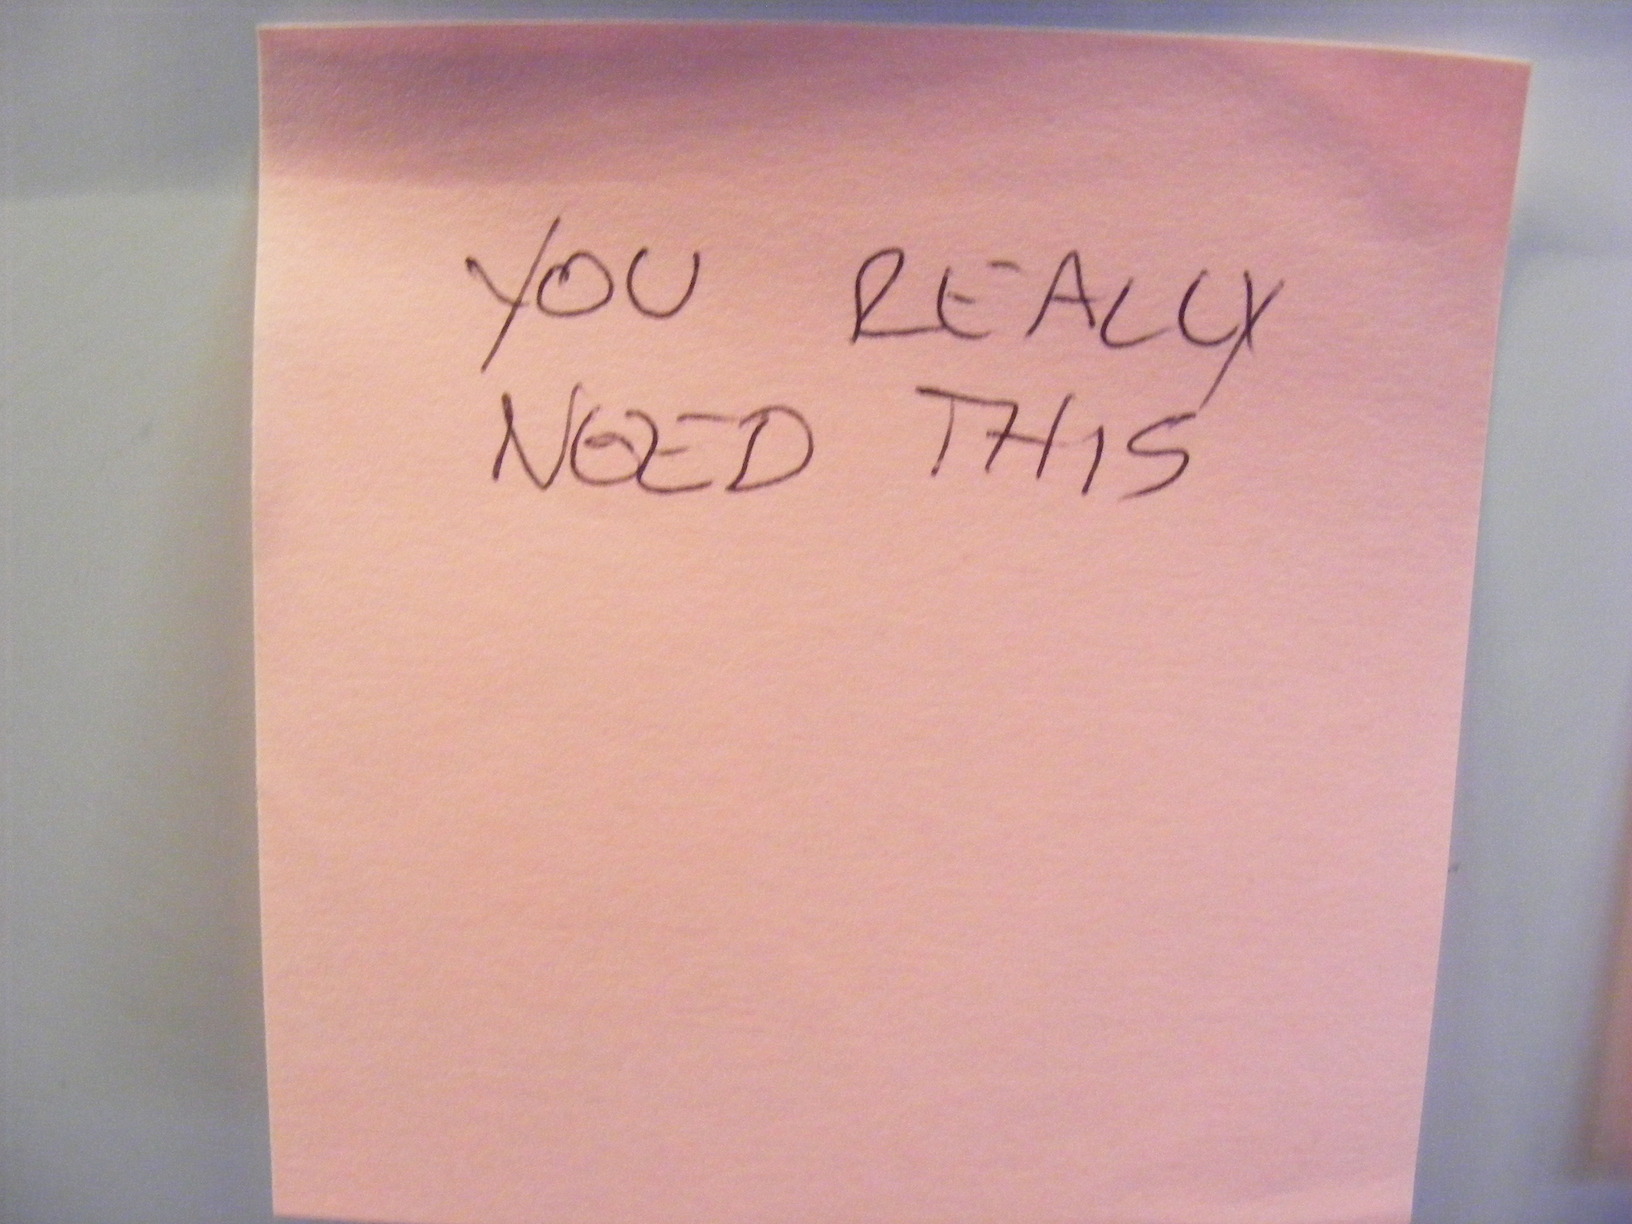 YOU REALLY
NEED THIS